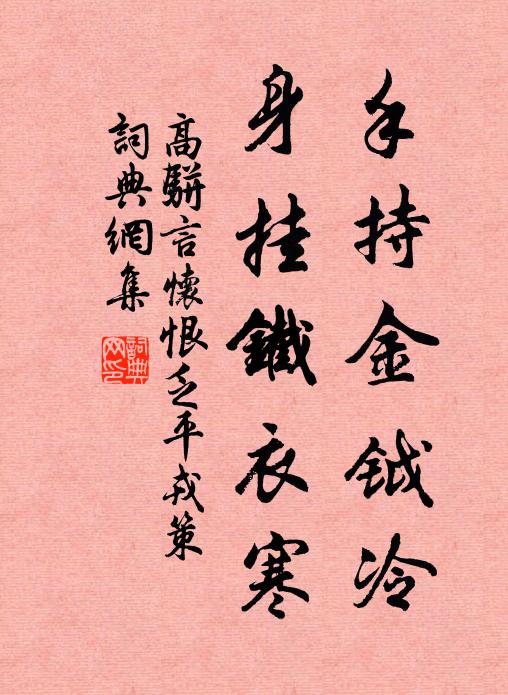 手持金钺冷
身挂鐵衣寒
高駢言懷恨乏平戎策
詞典網集
詞典網印